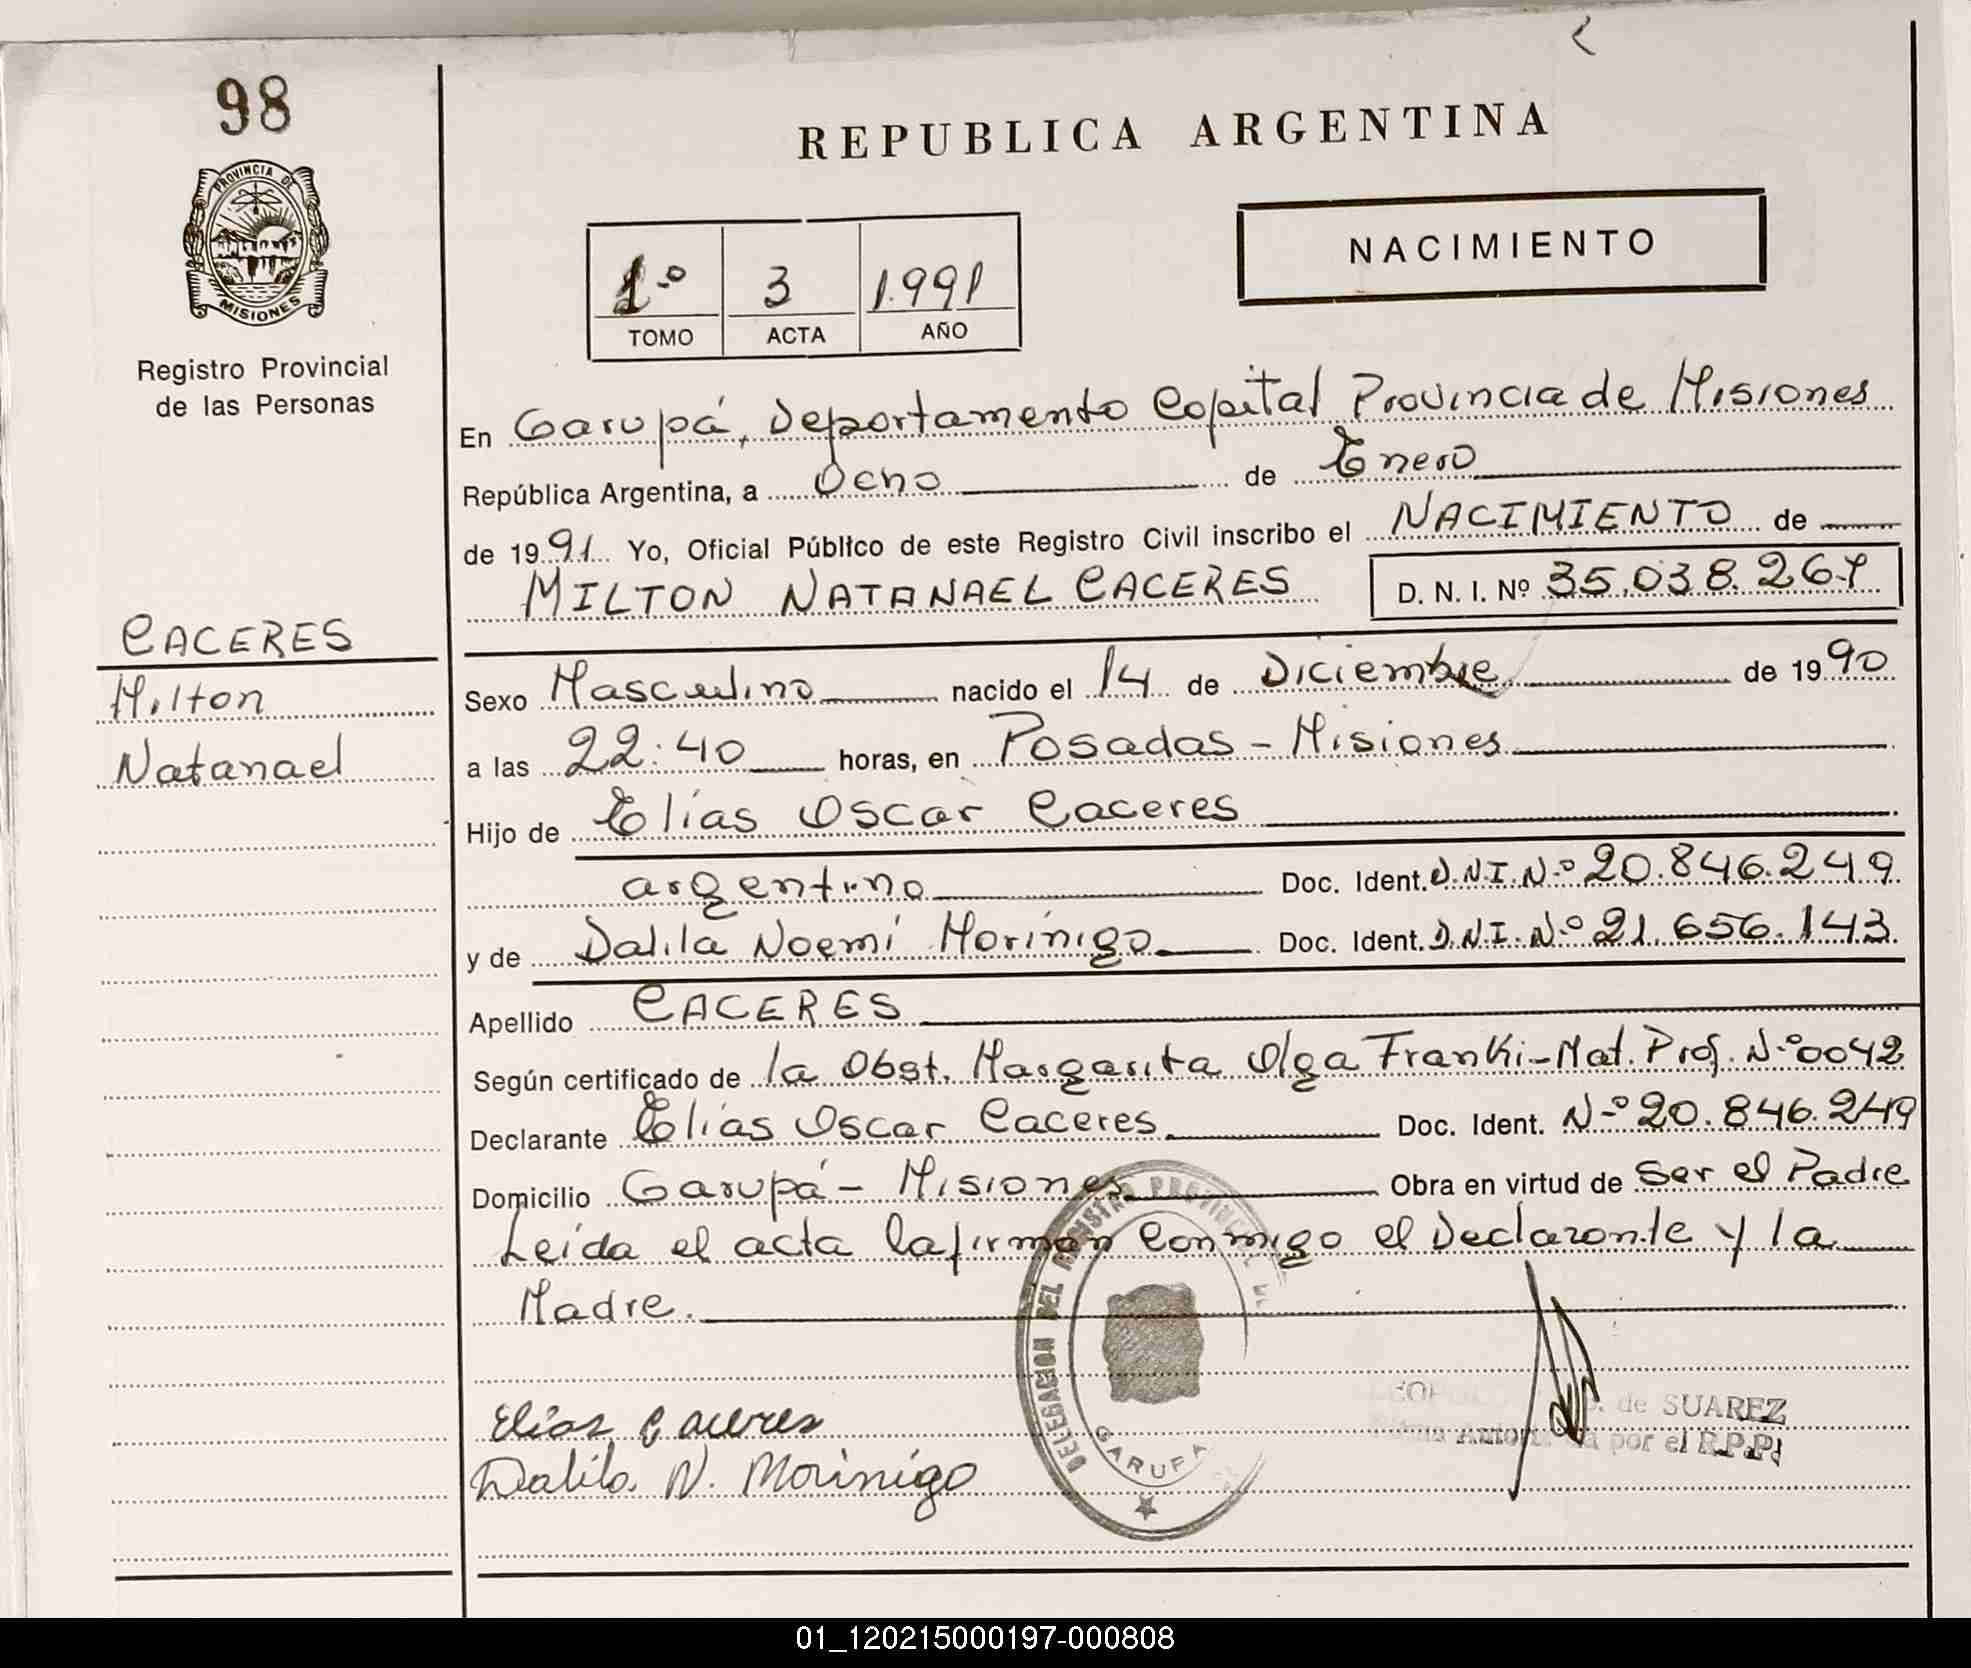 98
REPUBLICA ARGENTINA
PROVINCIA DE
MISIONES
NACIMIENTO
1.º 3 1.991
TOMO ACTA AÑO
Registro Provincial
de las Personas
En Garupá, Departamento Capital Provincia de Misiones
República Argentina, a Ocho de Enero
de 1991 Yo, Oficial Público de este Registro Civil inscribo el NACIMIENTO de
MILTON NATANAEL CACERES D. N. I. Nº 35.038.267
CACERES
Milton
Natanael
Sexo Masculino nacido el 14 de Diciembre de 1990
a las 22:40 horas, en Posadas - Misiones
Hijo de Elías Oscar Caceres
argentino Doc. Ident. D.N.I.Nº 20.846.249
y de Dalila Noemí Morínigo Doc. Ident. D.N.I. Nº 21.656.143
Apellido CACERES
Según certificado de la Obst. Margarita Olga Franki - Mat. Prof. Nº 0042
Declarante Elías Oscar Caceres Doc. Ident. Nº 20.846.249
Domicilio Garupá - Misiones Obra en virtud de Ser el Padre
Leída el acta la firman conmigo el Declarante y la
Madre.
DELEGACION DEL REGISTRO PROVINCIAL DE
GARUPA
Elías Caceres
Dalila N. Morinigo
de SUAREZ
por el R.P.P.
01_120215000197-000808